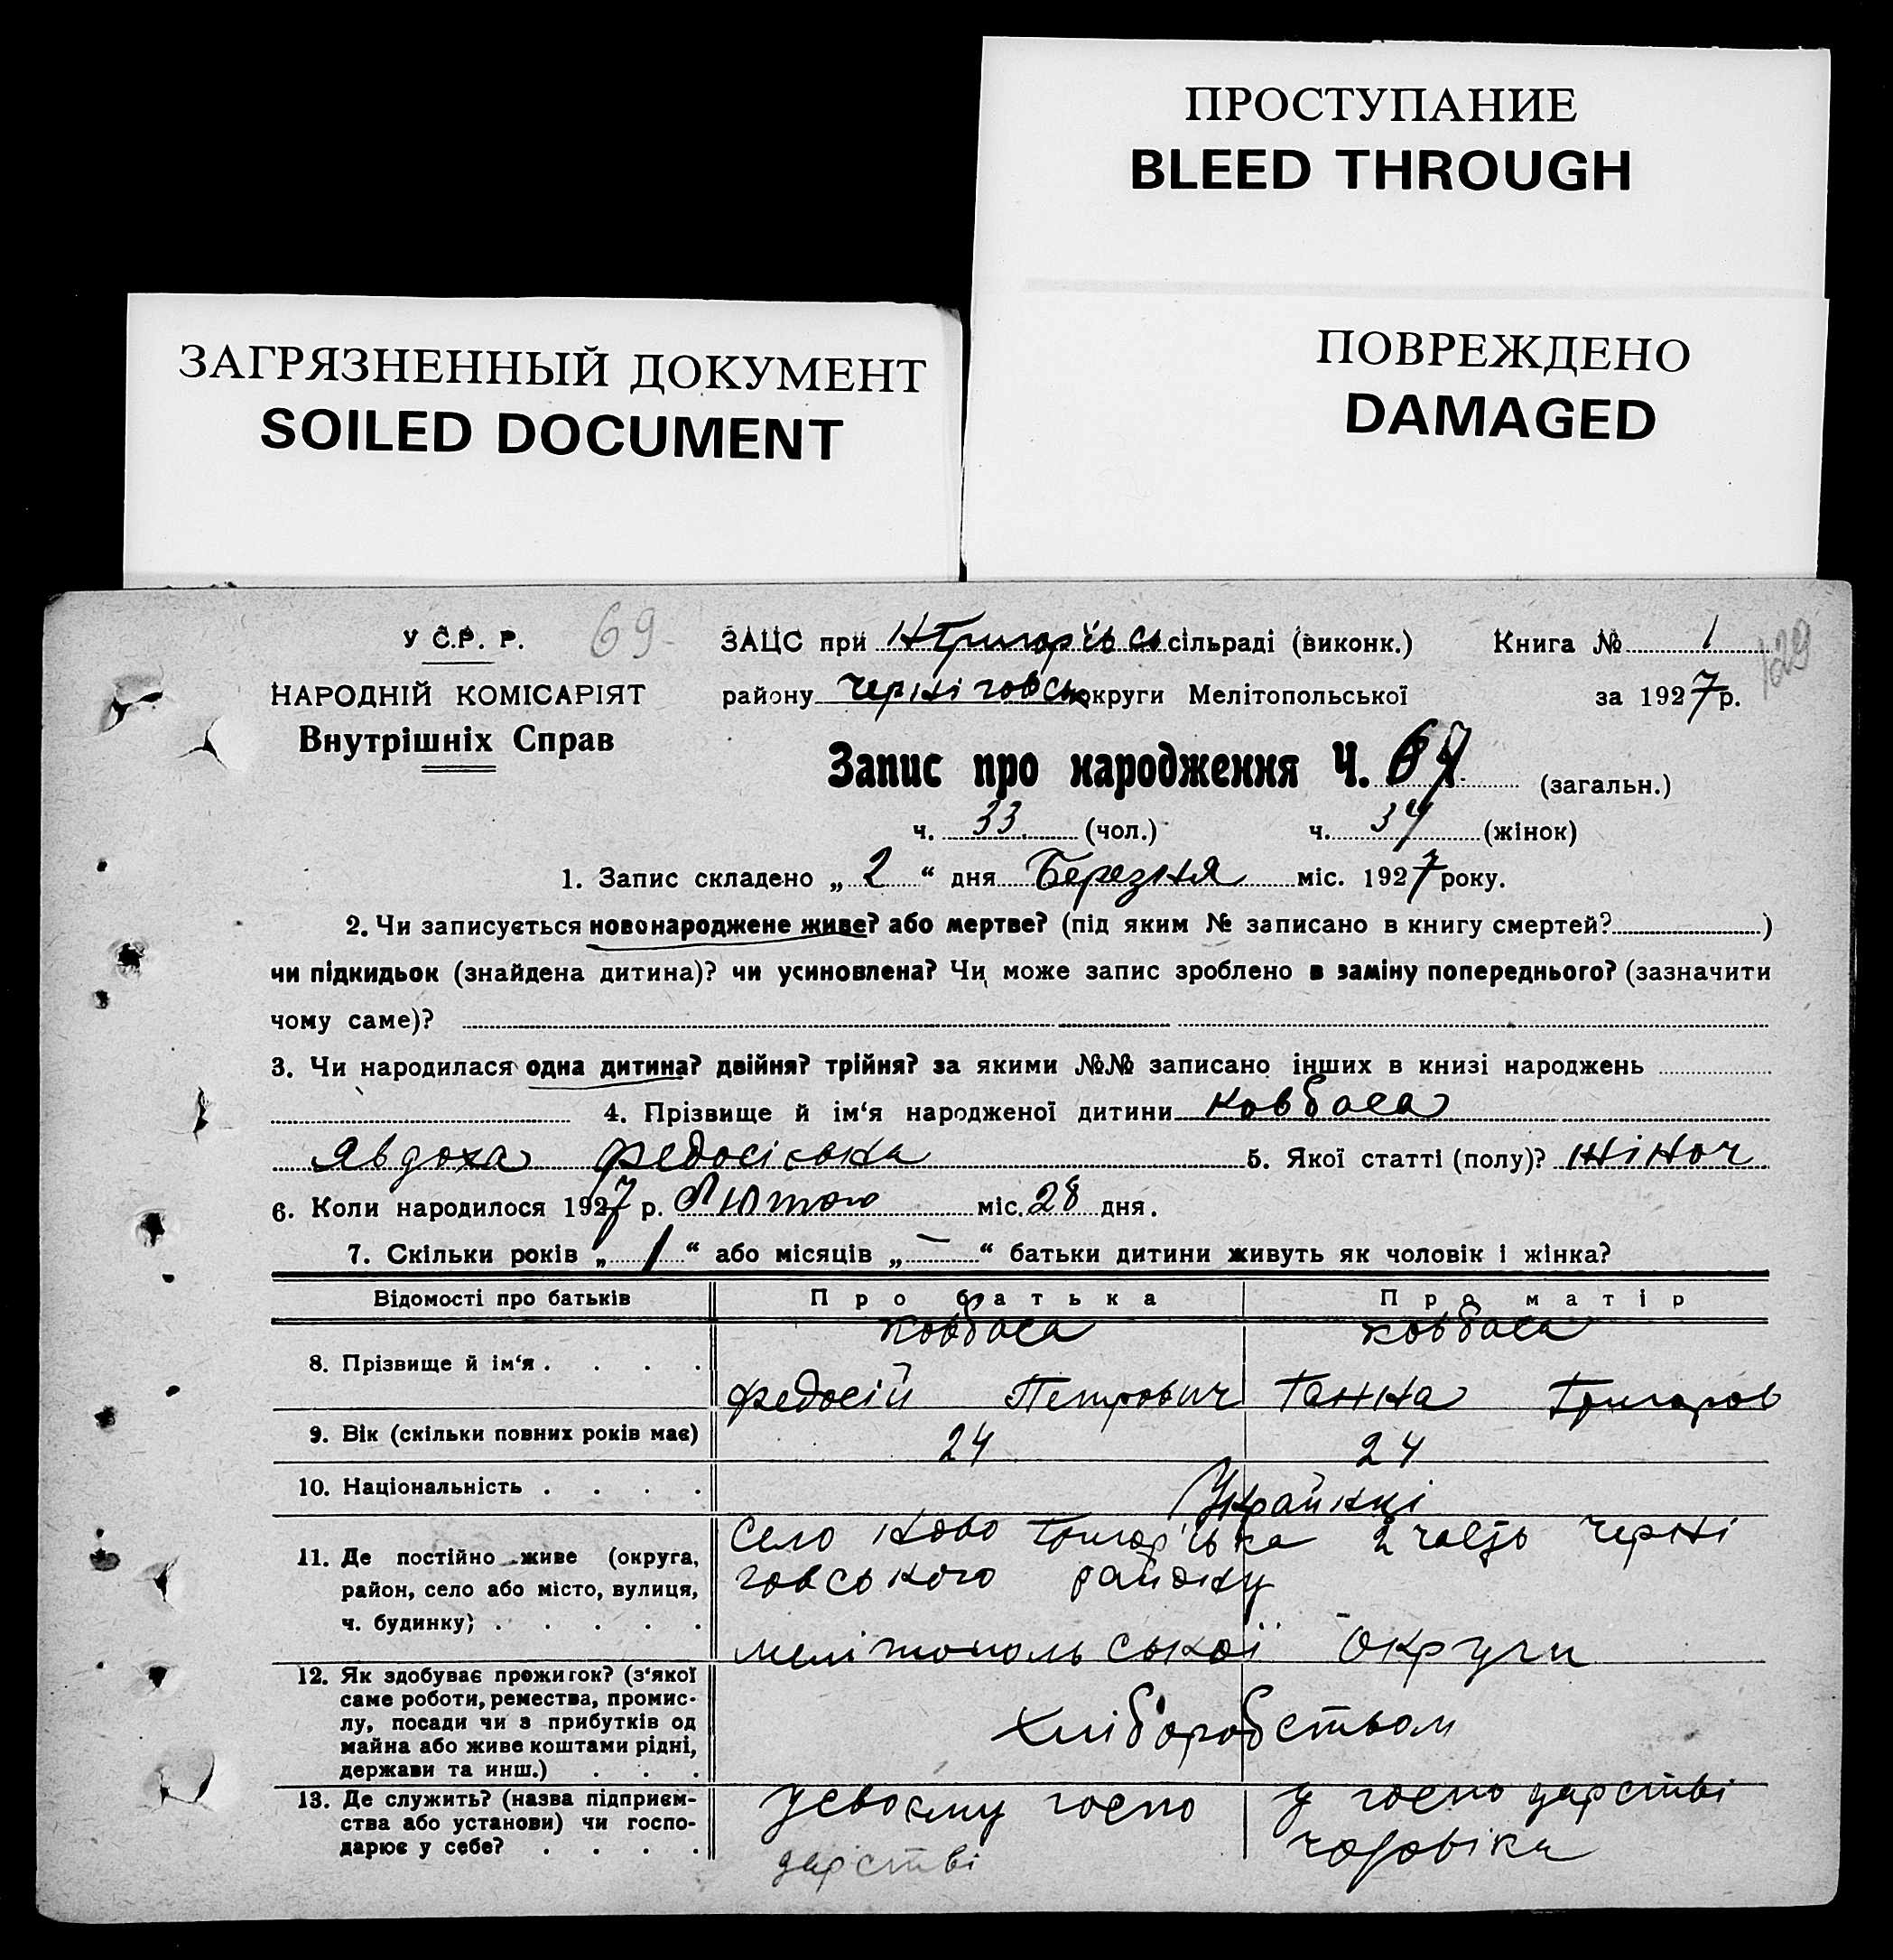 ПРОСТУПАНИЕ
BLEED THROUGH
ПОВРЕЖДЕНО
DAMAGED
ЗАГРЯЗНЕННЫЙ ДОКУМЕНТ
SOILED DOCUMENT
У С.Р. Р. 69 ЗАЦС при Н Григор'ївсь сільраді (виконк.) Книга № 1 129
НАРОДНІЙ КОМІСАРІЯТ району Черніговськ округи Мелітопольської за 1927 р.
Внутрішніх Справ
Запис про народження Ч. 67 (загальн.)
ч. 33 (чол.) ч. 34 (жінок)
1. Запис складено „ 2 “ дня Березня міс. 1927 року.
2. Чи записується новонароджене живе? або мертве? (під яким № записано в книгу смертей? )
чи підкидьок (знайдена дитина)? чи усиновлена? Чи може запис зроблено в заміну попереднього? (зазначити
чому саме)?
3. Чи народилася одна дитина? двійня? трійня? за якими №№ записано інших в книзі народжень
4. Прізвище й ім‘я народженої дитини Ковбаса
Явдоха Федосіївна 5. Якої статті (полу)? жіноч
6. Коли народилося 1927 р. Лютого міс. 28 дня.
7. Скільки років „ 1 “ або місяців „ — “ батьки дитини живуть як чоловік і жінка?
Відомості про батьків Про батька Про матір
Ковбаса Ковбаса
8. Прізвище й ім‘я . . . .
Федосій Петрович Ганна Григоров
9. Вік (скільки повних років має) 24 24
10. Національність . . . . Українці
Село Ново Григор'ївка 2 часть Черні
11. Де постійно живе (округа,
район, село або місто, вулиця, говського району
ч. будинку; . . . . .
мелітопольської Округи
12. Як здобуває прожиток? (з‘якої
саме роботи, ремества, промис-
лу, посади чи з прибутків од Хліборобством
майна або живе коштами рідні,
держави та инш.) . . .
13. Де служить? (назва підприєм- у своєму госпо у господарстві
ства або установи) чи госпо-
дарює у себе? . . . . дарстві чоловіка